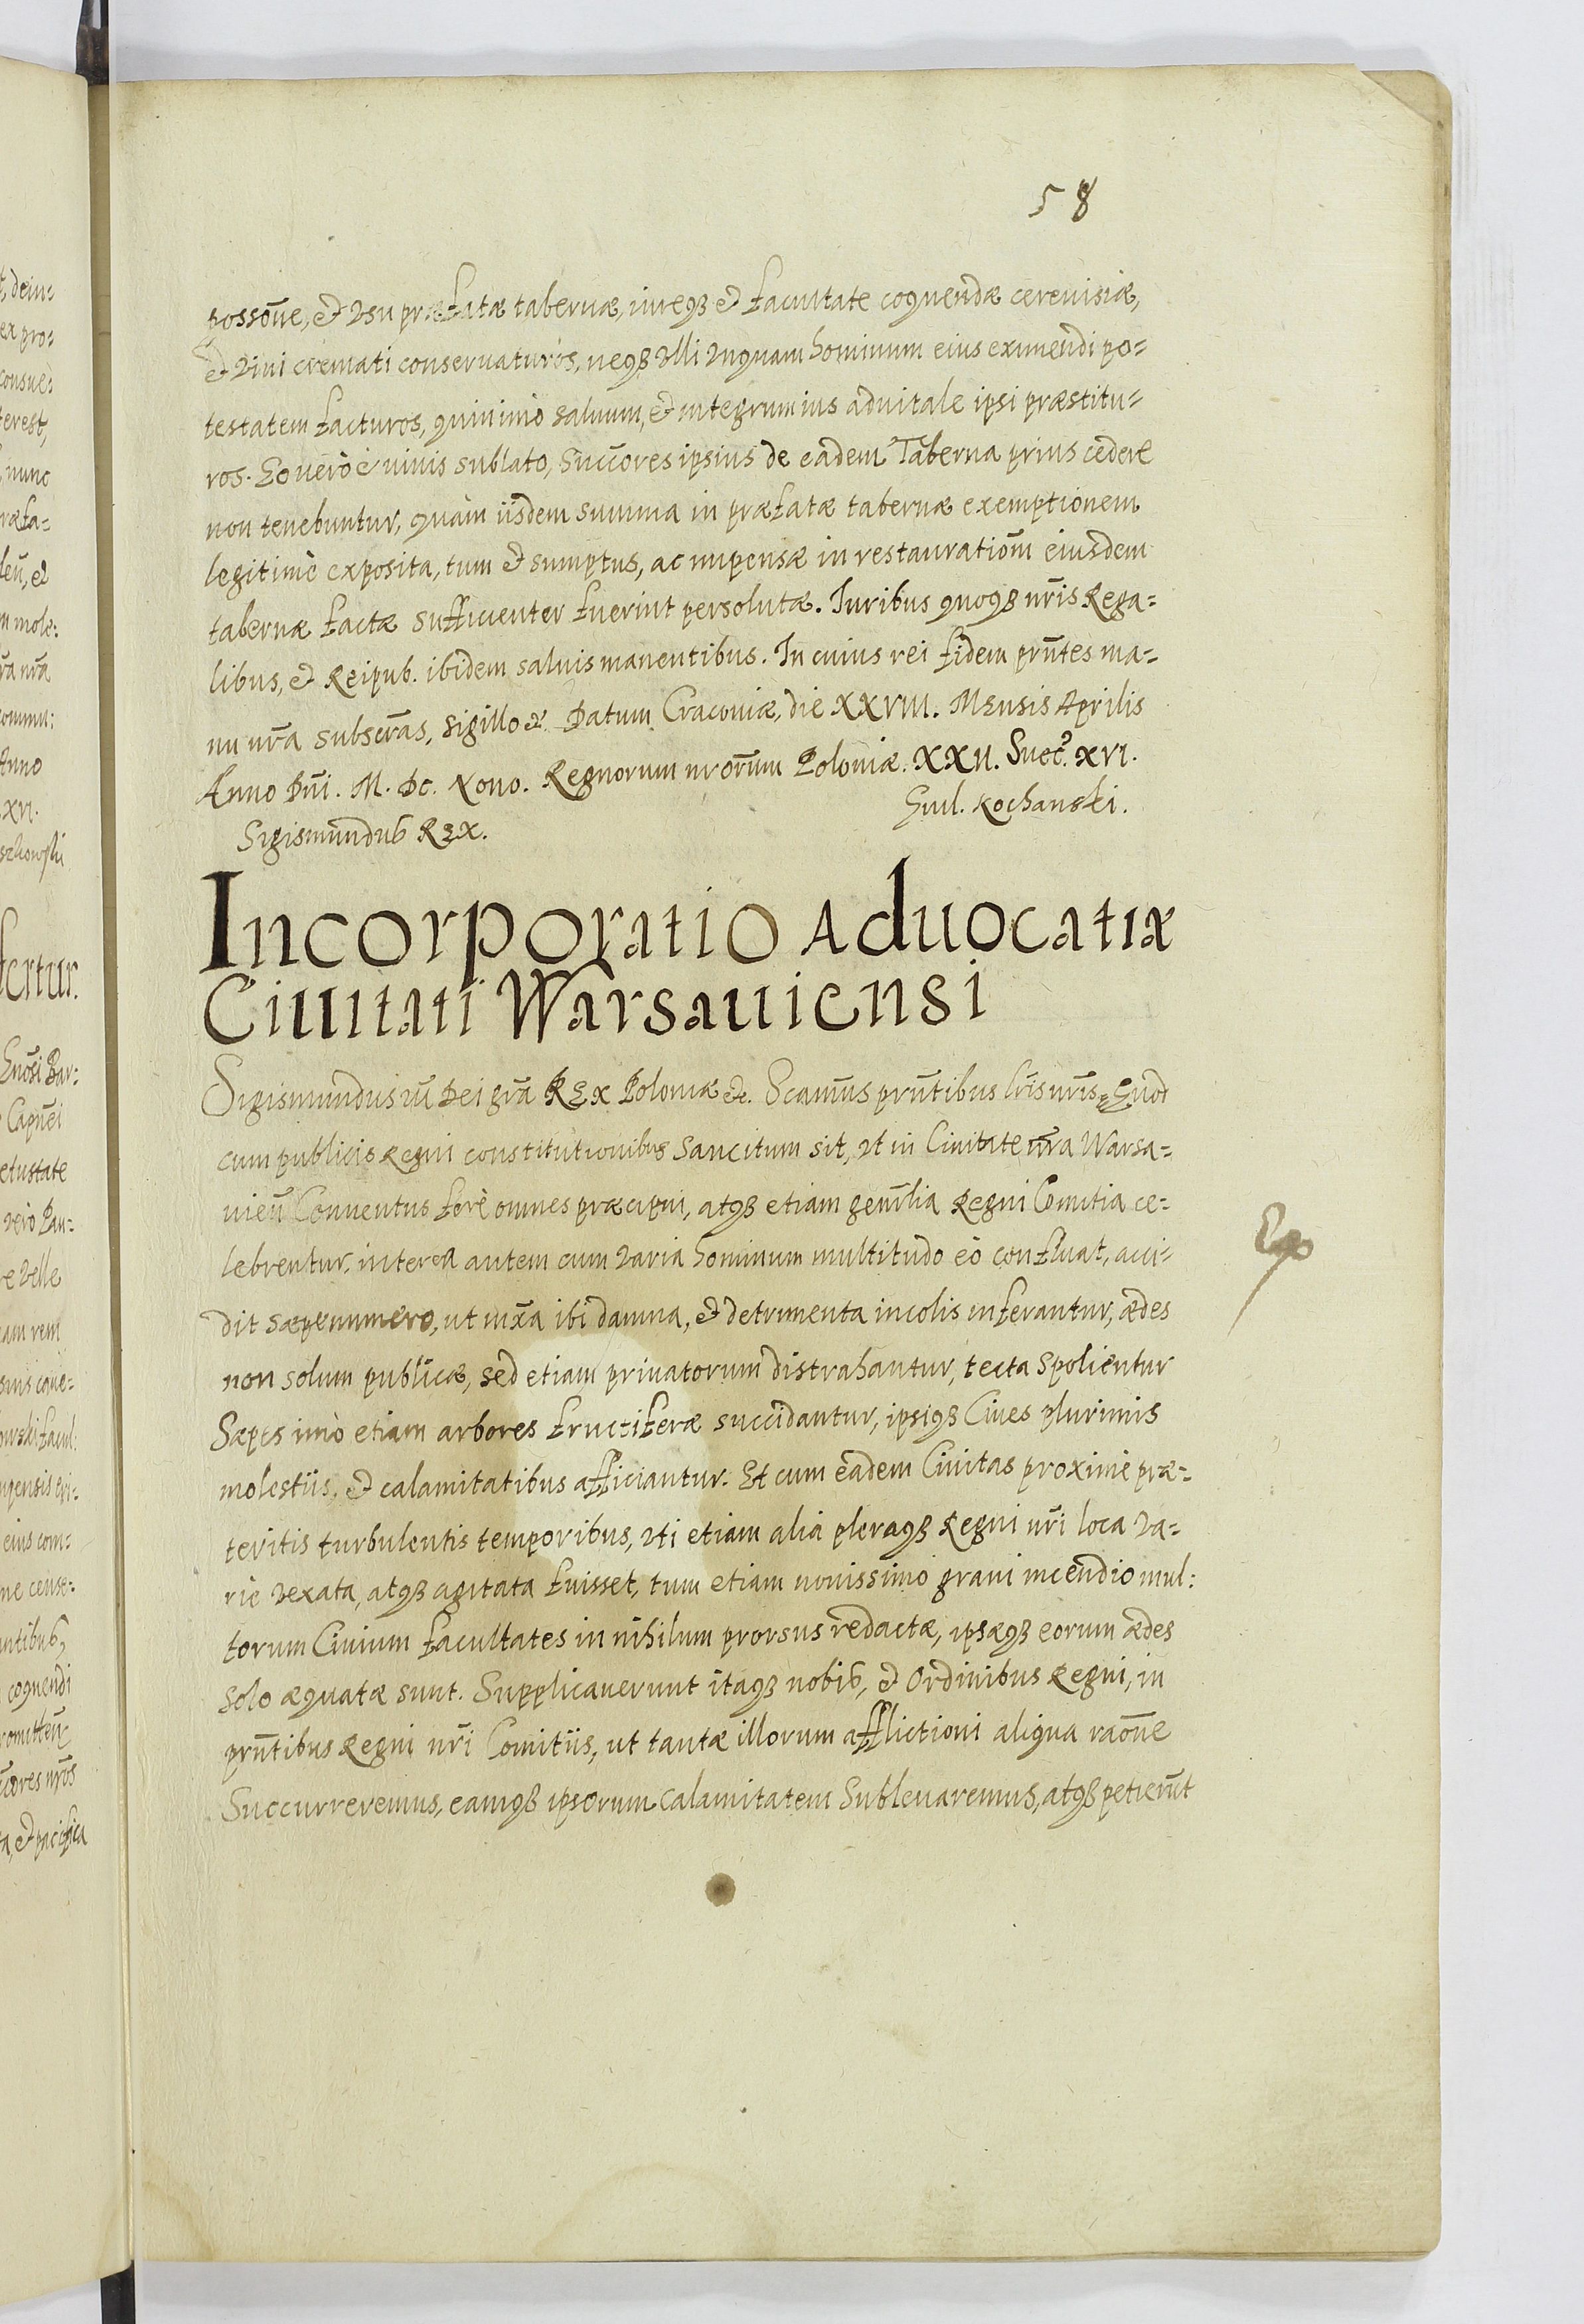 58
possoñe, et vsu præfatæ tabernæ, iureq₃ et facultate coquendæ cereuisiæ,
et vini cremati conseruaturos, neq₃ vlli vnquam hominum eius eximendi po-
testatem facturos, quinimò saluum, et integrum ius aduitale ipsi præstitu-
ros. Eo verò è viuis sublato, Succores ipsius de eadem Taberna prius cedere
non tenebuntur, quàm iisdem summa in præfatæ tabernæ exemptionem
legitimè exposita, tum et sumptus, ac impensæ in restauratioñm eiusdem
tabernæ factæ sufficienter fuerint persolutæ. Iuribus quoq₃ nr̃is Rega-
libus, et Reipub. ibidem saluis manentibus. In cuius rei fidem prñtes ma-
nu nr̃a subscr̃as, sigillo etc. Datum Cracouiæ, die XXVIII. Mensis Aprilis
Anno Dñi. M. DC. Nono. Regnorum nrorũm Poloniæ. XXII. Suec. XVI.
Sigismundus Rex.
Guil. Kochanski.
Incorporatio Aduocatiæ
Ciuitati Warsauiensi
Sigismundus iii Dei gr̃a Rex Poloniæ etc. Scam̃us prñtibus lr̃is nr̃is Quod
cum publicis Regni constitutionibus sancitum sit, vt in Ciuitate nr̃a Warsa-
uieñ Conuentus forè omnes præcipui, atq₃ etiam genr̃lia Regni Comitia ce-
lebrentur, interea autem cum varia hominum multitudo eò confluat, acci-
dit sæpenumero, ut mx̃a ibi damna, et detrimenta incolis inferantur, ædes
non solum publicæ, sed etiam priuatorum distrahantur, tecta spolientur
Sæpes imò etiam arbores fructiferæ succidantur, ipsiq₃ Ciues plurimis
molestiis, et calamitatibus afficiantur. Et cum eadem Ciuitas proximè præ-
teritis turbulentis temporibus, vti etiam alia pleraq₃ Regni nr̃i loca va-
riè vexata, atq₃ agitata fuisset, tum etiam nouissimo graui incendio mul:
torum Ciuium facultates in nihilum prorsus redactæ, ipsæq₃ eorum ædes
solo æquatæ sunt. Supplicauerunt itaq₃ nobis, et Ordinibus Regni, in
prñtibus Regni nr̃i Comitiis, ut tantæ illorum afflictioni aliqua raoñe
Succurreremus, eamq₃ ipsorum calamitatem Subleuaremus, atq₃ petier̃ut